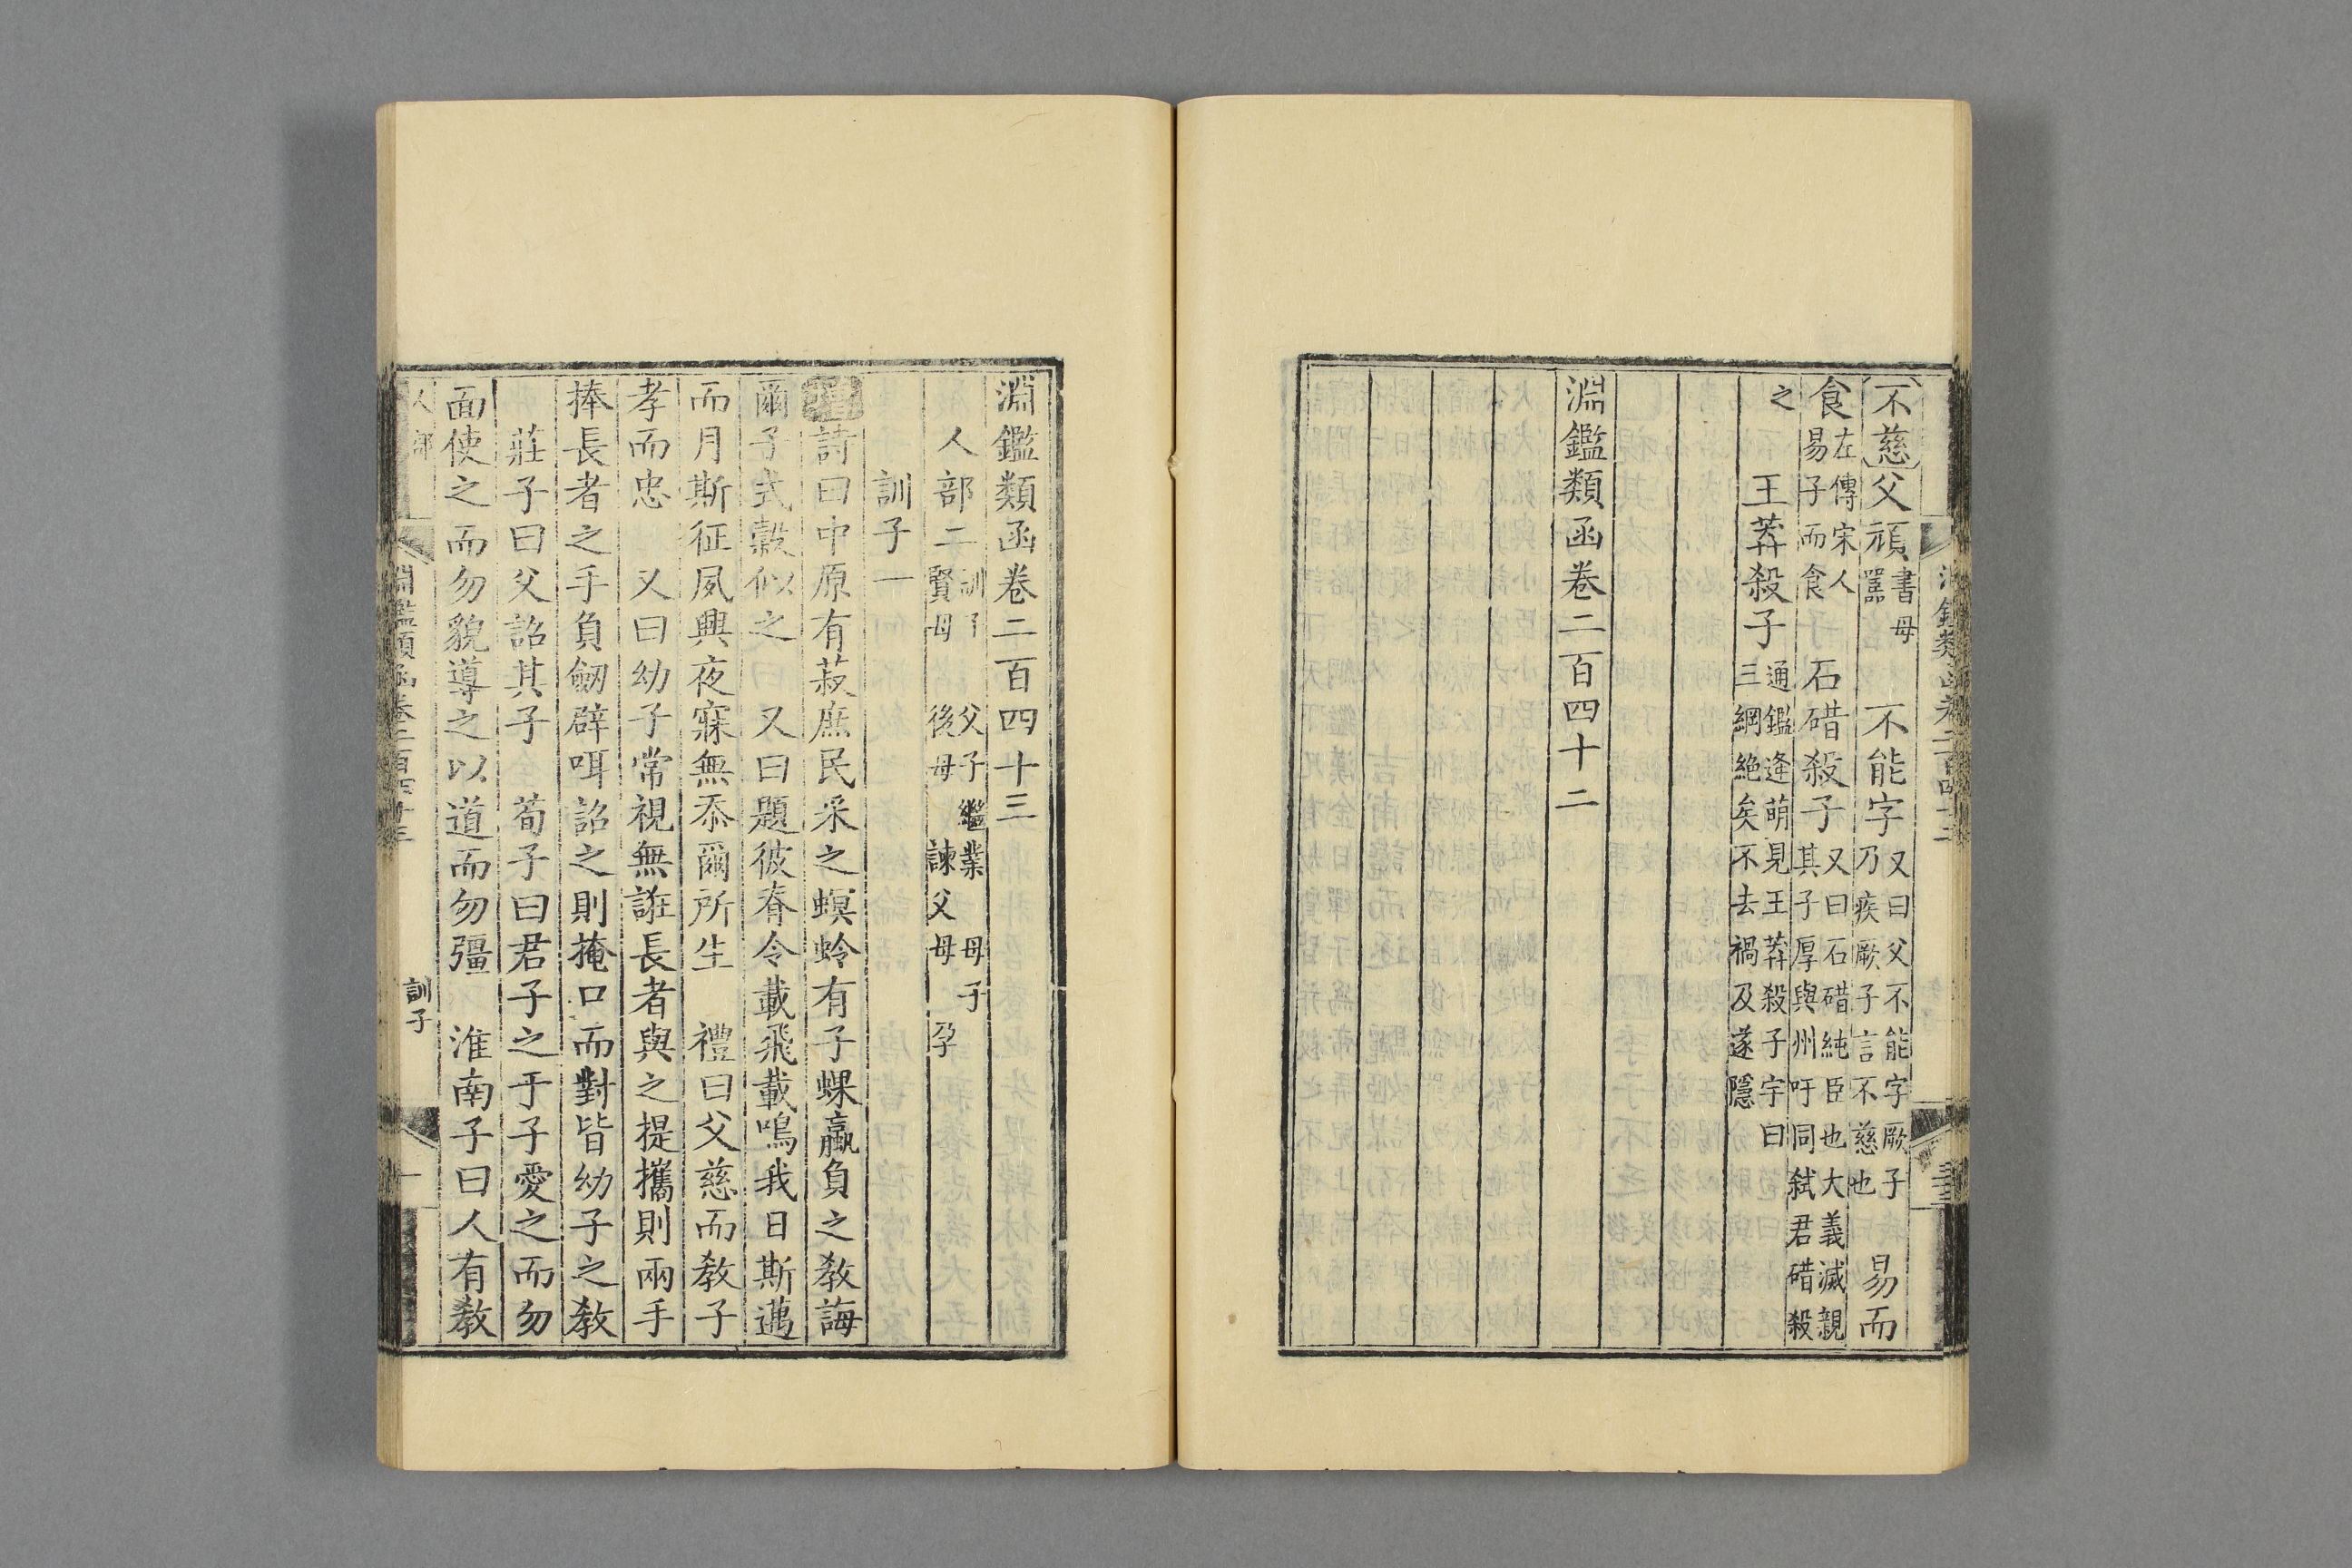 不慈父頑書母嚚 不能字又曰父不能字厥子乃疾厥子言不慈也 易而
食左傳宋人易子而食 石碏殺子又曰石碏純臣也大義滅親其子厚與州吁同弒君碏殺
之 王莽殺子通鑑逄萌見王莽殺子字曰三綱絶矣不去禍及遂隱
淵鑑類函卷二百四十二
淵鑑類函卷二百四十三
人部二訓子 父子繼業 母子賢母 後母 諫父母 孕
訓子一
詩曰中原有菽庶民采之螟蛉有子蜾蠃負之教誨
爾子式穀似之 又曰題彼脊令載飛載鳴我日斯邁
而月斯征夙興夜寐無忝爾所生 禮曰父慈而教子
孝而忠 又曰幼子常視無誑長者與之提攜則兩手
捧長者之手負劒辟咡詔之則掩口而對皆幼子之教
莊子曰父詔其子 荀子曰君子之于子愛之而勿
面使之而勿貌導之以道而勿彊 淮南子曰人有教
人部 淵鑑類函卷二百四十三 訓子 一